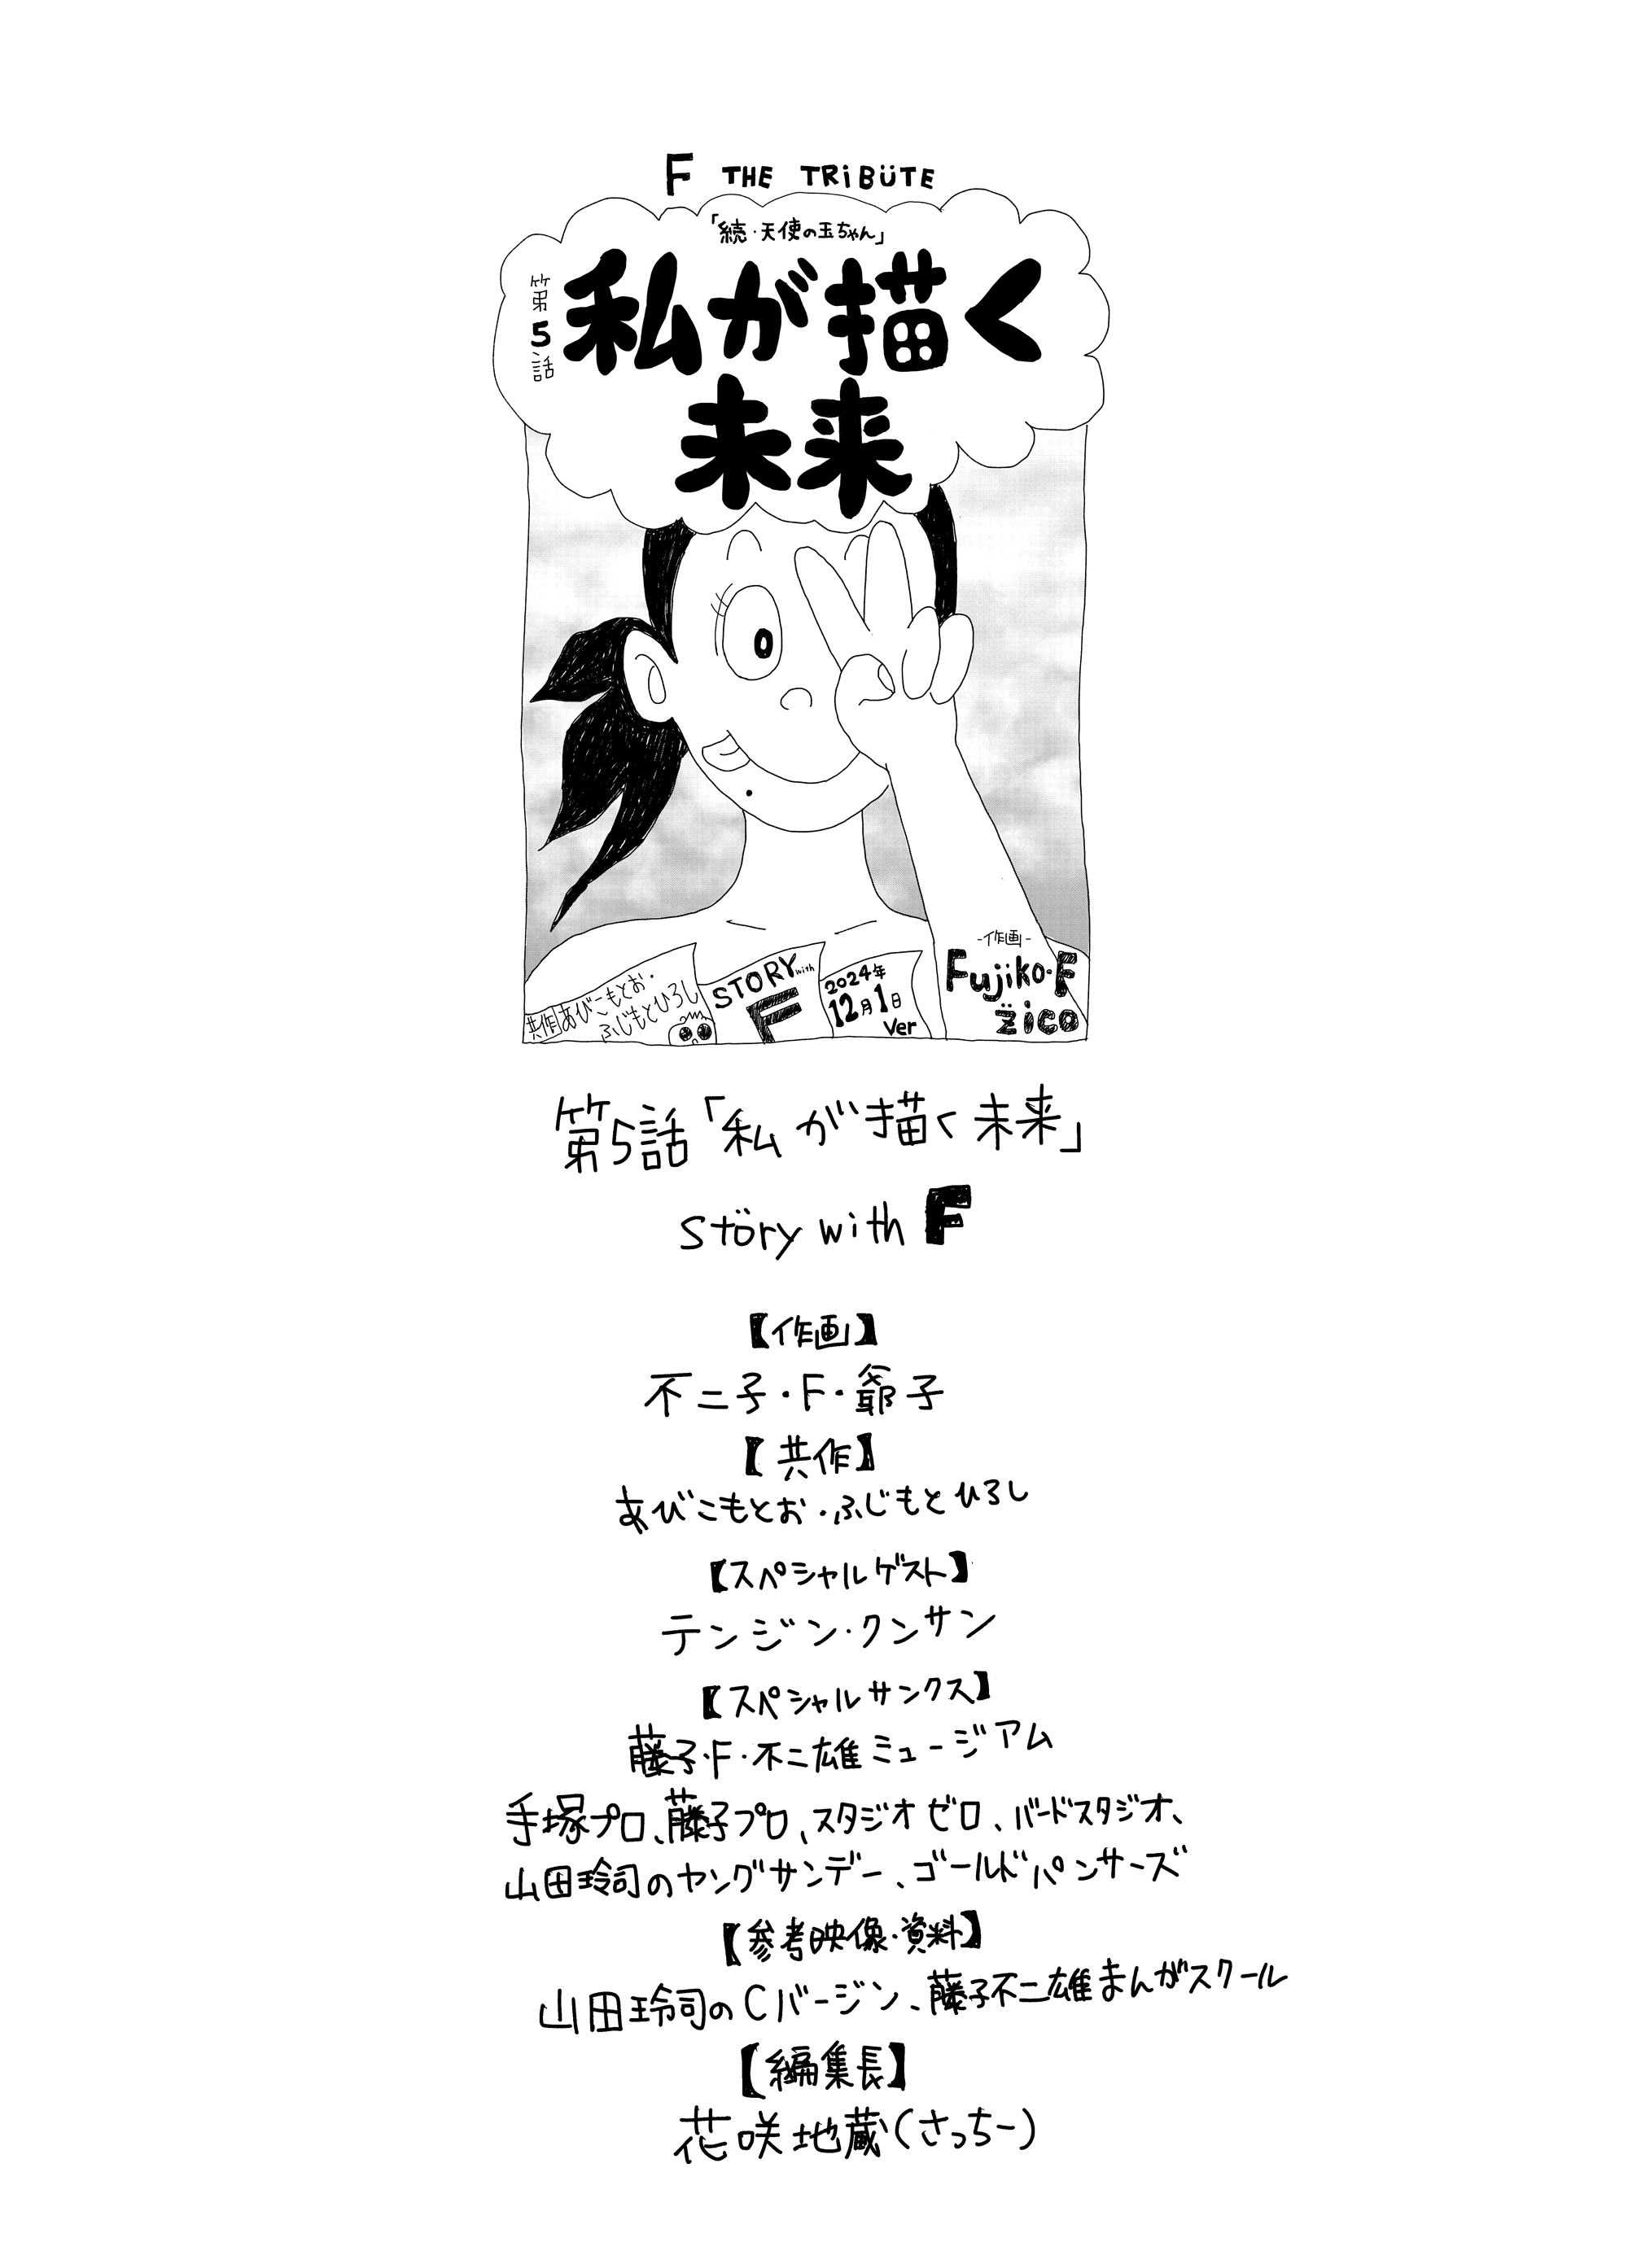 F THE TRiBÜTE
「続・天使の玉ちゃん」
第5話
私が描く
未来
共作 あびこもとお・
ふじもとひろし
STORY with
F
2024年
12月1日
Ver
-作画-
Fujiko・F
zico
第5話「私が描く未来」
störy with F
【作画】
不二子・F・爺子
【共作】
あびこもとお・ふじもとひろし
【スペシャルゲスト】
テンジン・クンサン
【スペシャルサンクス】
藤子・F・不二雄ミュージアム
手塚プロ、藤子プロ、スタジオゼロ、バードスタジオ、
山田玲司のヤングサンデー、ゴールドパンサーズ
【参考映像・資料】
山田玲司のCバージン、藤子不二雄まんがスクール
【編集長】
花咲地蔵(さっちー)